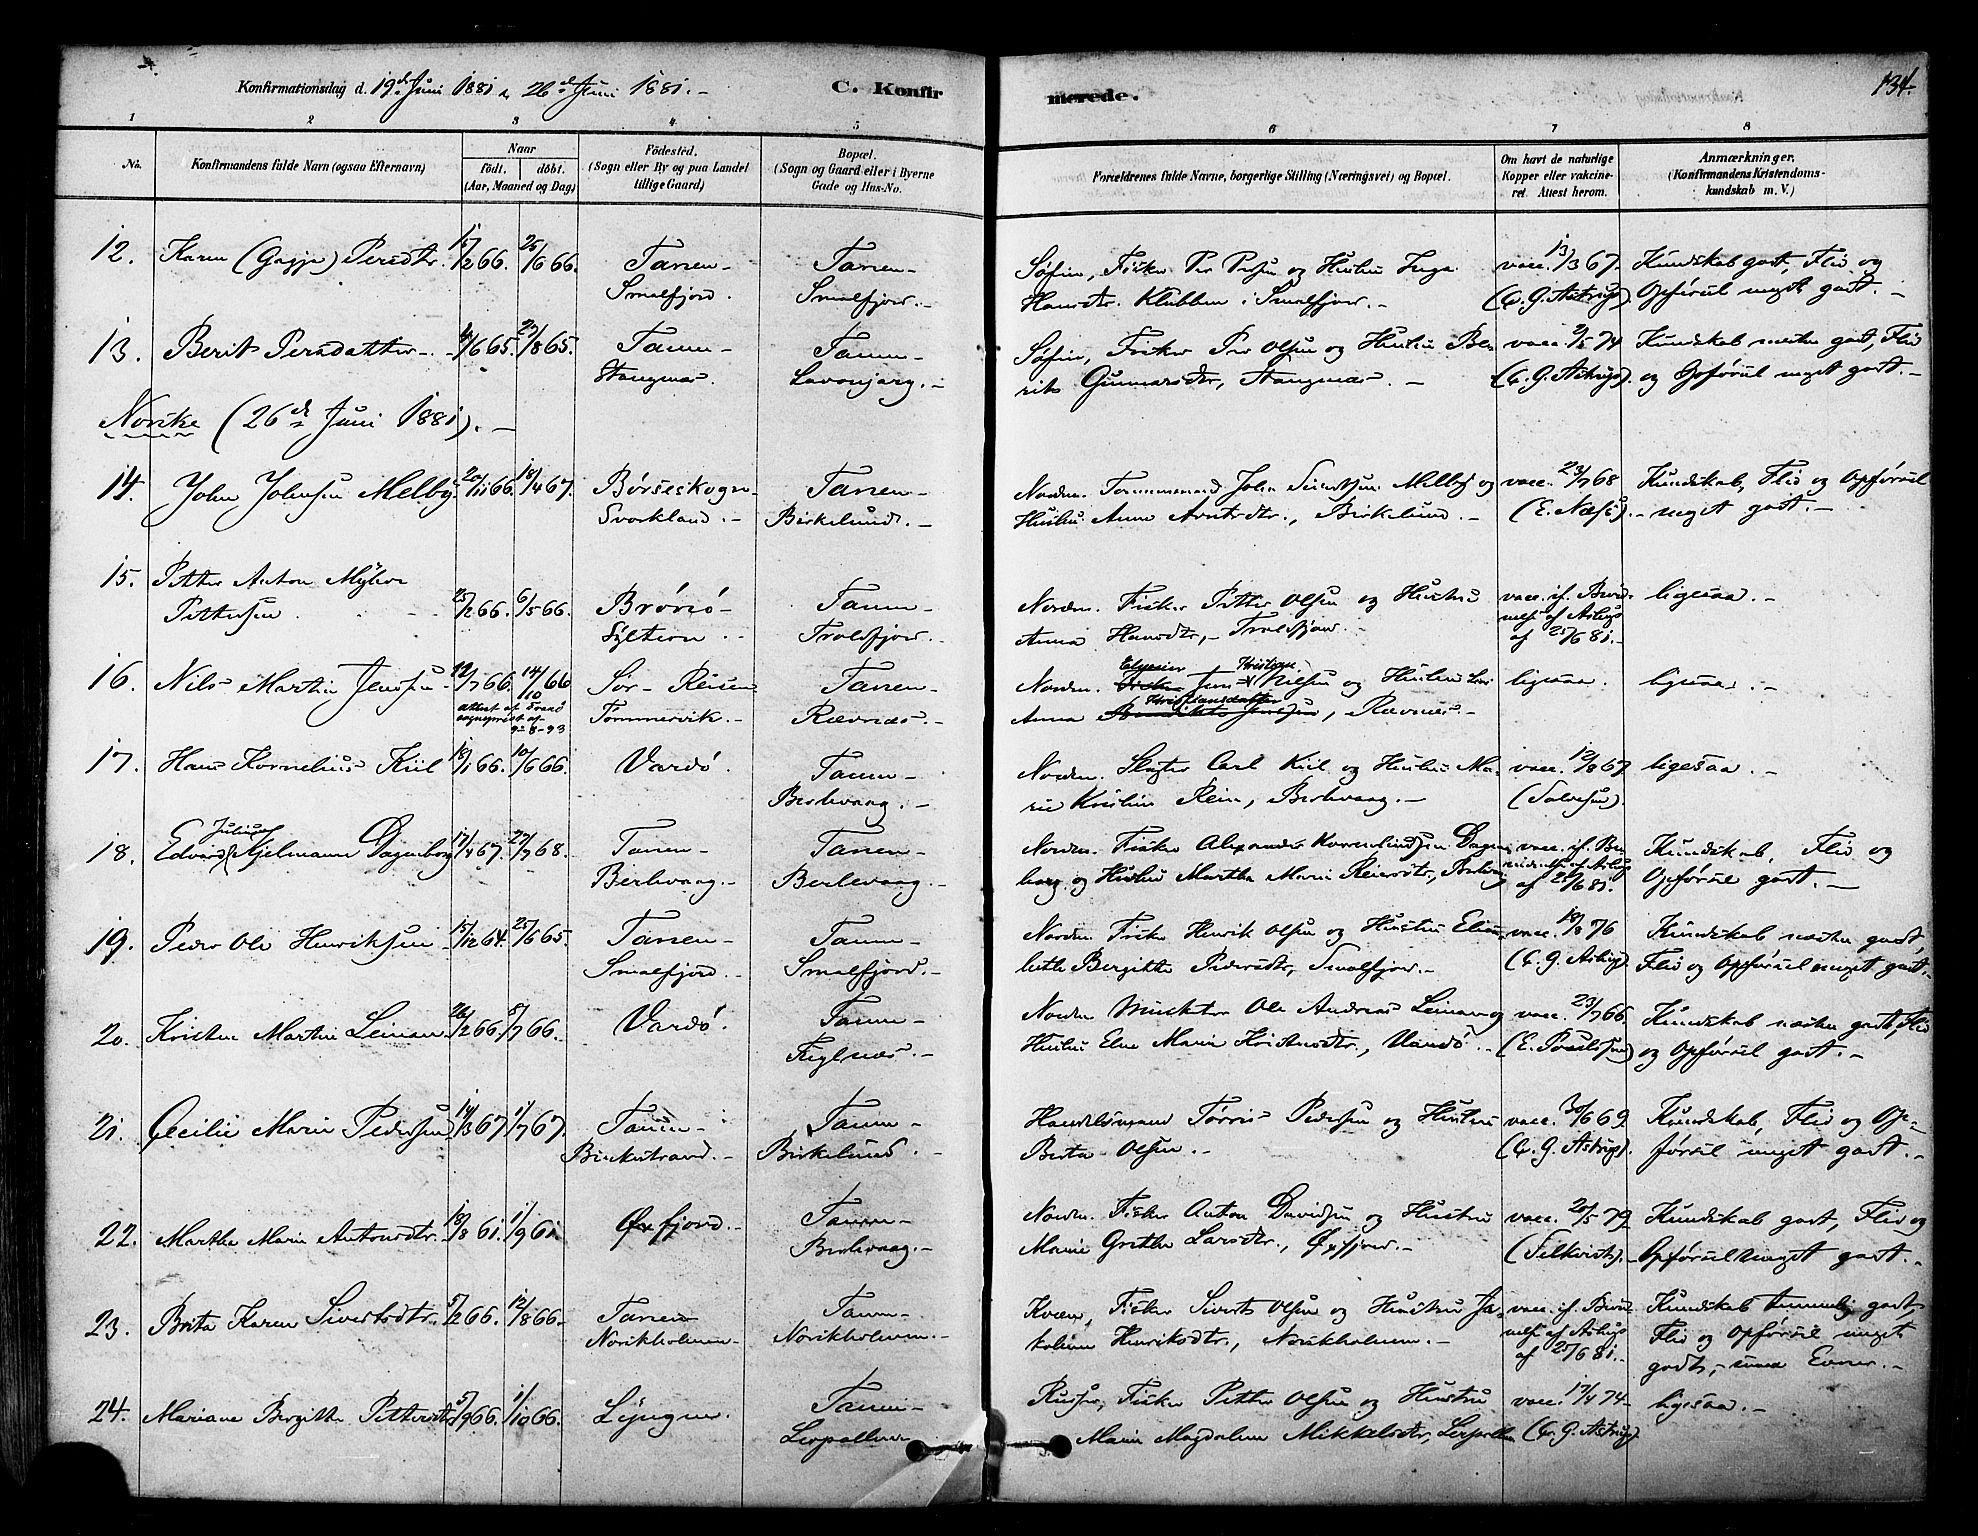 134.
Konfirmationsdag d. 19de Juni 1881 26de Juni 1881. -
C. Konfir
merede.
1 2 3 4 5 6 7 8
No.
Konfirmandens fulde Navn (ogsaa Efternavn)
Naar
født. døbt.
(Aar, Maaned og Dag)
Fødested.
(Sogn eller By og paa Landet
tillige Gaard)
Bopæl.
(Sogn og Gaard eller i Byerne
Gade og Hus-No.
Forældrenes fulde Navne, borgerlige Stilling (Næringsvei) og Bopæl.
Om havt de naturlige
Kopper eller vakcine-
ret. Attest herom.
Anmærkninger.
(Konfirmandens Kristendoms-
kundskab m. V.)
12. Karen (Gagga) Persdtr. 15/2 66. 25/6 66. Tanen- Tanen- Søfin, Fisker Per Persen og Hustru Inga vacc. 13/3 67. Kundskab godt, Flid og
Smalfjord. Smalfjord. - Hansdtr. Klubben i Smalfjord. - (C. G. Astrup) Opførsel meget godt. -
13. Berit Persdatter. 4/6 65. 27/8 65. Tanen- Tanen- Søfin, Fisker Per Olsen og Hustru Be- vacc. 2/5 74 Kundskab næsten godt, Flid
Stangnæs. Lavonjarg. - rit Gunnarsdtr, Stangnæs. - (C. G. Astrup). og Opførsel meget godt. -
Norske (26de Juni 1881). -
14. John Johnsen Melby 20/11 66. 18/4 67. Børseskogn- Tanen- Nordm. Tømmermand John Sivertsen Melby og vacc. 23/7 68 Kundskab, Flid og Opførsel
Svorkland. - Birkelund. - Hustru Anne Arntsdtr., Birkelund. - (E. Næss). - meget godt. -
15. Petter Anton Myhre
Pettersen 25/2 66. 6/5 66. Brønø- Tanen- Nordm. Fisker Petter Olsen og Hustru vacc. if. Bevid- ligesaa. -
Troldfjord. - Anna Hansdtr, - Troldfjord. - nelse af Astrup
af 25/6 81. -
16. Nils Martin Jenssen 19/7 66. 14/10 66 Sør-Reisen Tanen- Nordm. Jens Nilsen og Hustru ligesaa. ligesaa. -
Elgesier Kristian
attest af Tranø
sogneprest af
9-8-93
Tømmervik. - Rævnæs. - Anna Kristiansdatter, Rævnæs. -
17. Hans Kornelius Kiil 18/1 66. 10/6 66. Vardø. Tanen- Nordm. Carl Kiil og Hustru Ma- vacc. 12/8 67 ligesaa. -
Berlevaag. - rie Kristine Rein, Berlevaag. - (Salvesen).
18. Edvard Julius Hjelmann Dagenborg 17/4 67. 27/7 68. Tanen- Tanen- Nordm. Fisker Alexander Korneliussen Dagen- vacc. if. Be- Kundskab, Flid og
Berlevaag. - Berlevaag. - borg og Hustru Martha Marie Reiersdtr, vidnelse af Astrup Opførsel godt. -
af 25/6 81.
19. Peder Ole Henriksen 15/12 64. 25/6 65. Tanen- Tanen- Nordm. Fisker Henrik Olsen og Hustru vacc. 18/8 76 Kundskab næsten godt
Smalfjord. - Smalfjord. - Bergitte Pedersdtr, Smalfjord. - (C. G. Astrup) Flid og Opførsel meget godt. -
20. Kristen Martin Leiman 26/2 66. 8/7 66. Vardø. Tanen- Nordm. Ole Andreas Leiman og vacc. 23/7 66. Kundskab næsten godt, Flid
Fuglnæs. - Hustru Else Marie Kristensdtr., Vardø. - og Opførsel godt. -
21. Cecilie Marie Pedersen 14/3 67 1/7 67. Tanen- Tanen- Handelsmand Tørris Pedersen og Hustru vacc. 30/6 69 Kundskab, Flid og Op-
Birkestrand. - Birkelund. - Berta Olsen. - (C. G. Astrup). førsel meget godt. -
22. Martha Marie Antonsdtr. 18/8 61. 1/9 61 Øxfjord. - Tanen- Nordm. Fisker Anton Davidsen og Hustru vacc. 20/5 79 Kundskab godt, Flid og
Berlevaag. - Marie Grethe Larsdtr., Øxfjord. - Opførsel meget godt. -
23. Brita Karen Sivertsdtr. 5/2 66. 12/8 66. Tanen- Tanen- Kvæn, Fisker Sivert Olsen og Hustru Ja- vacc. if. Bevid- Kundskab temmelig godt,
Norskholmen- Norskholmen. - kobine Henriksdtr., Norskholmen. - nelse af Astrup Flid og Opførsel meget
af 25/6 81. - godt, - Evner. -
24. Mariane Bergitte Pettersdtr 5/9 66. 1/10 66. Lyngen. Tanen- Fisker Petter Olsen og Hustru vacc. 17/4 74- ligesaa. -
Leirpollen Marie Magdalene Mikkelsdtr, Leirpollen (C. G. Astrup)